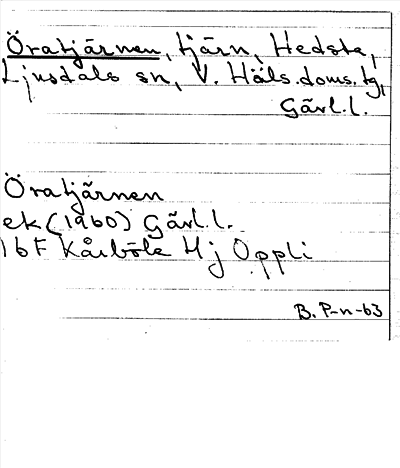 Öratjärnen, tjärn, Hedsta,
Ljusdals sn, V. Häls. doms. tg,
Gävl. l.
Öratjärnen
ek (1960) Gävl. l.
16 F Kårböle Hj Oppli
B. P-n-63